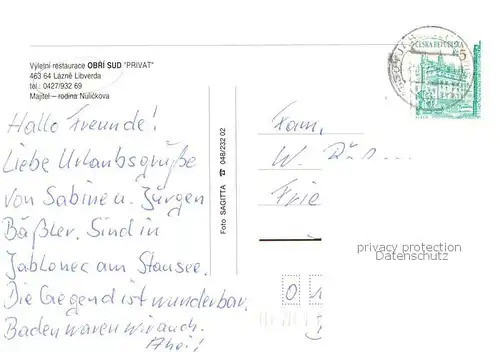 Výletní restaurace OBŘÍ SUD "PRIVAT"
463 64 Lázně Libverda
tel.: 0427/932 69
Majitel – rodina Nuličkova
Hallo Freunde!
Liebe Urlaubsgrüße
von Sabine u. Jürgen
Bäßler. Sind in
Jablonec am Stausee.
Die Gegend ist wunderbar.
Baden waren wir auch.
Ahoi!
Foto SAGITTA ☎ 048/232 02
ČESKÁ REPUBLIKA
5
Fam.
W.
Frie
privacy protection
Datenschutz
0 1